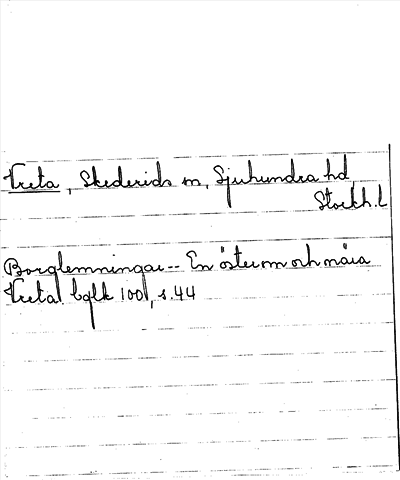 Vreta, Skederids sn, Sjuhundra hd
Stockh.l
Borglemningar -- En öster om och nära
Vreta. bglk 100, s.44